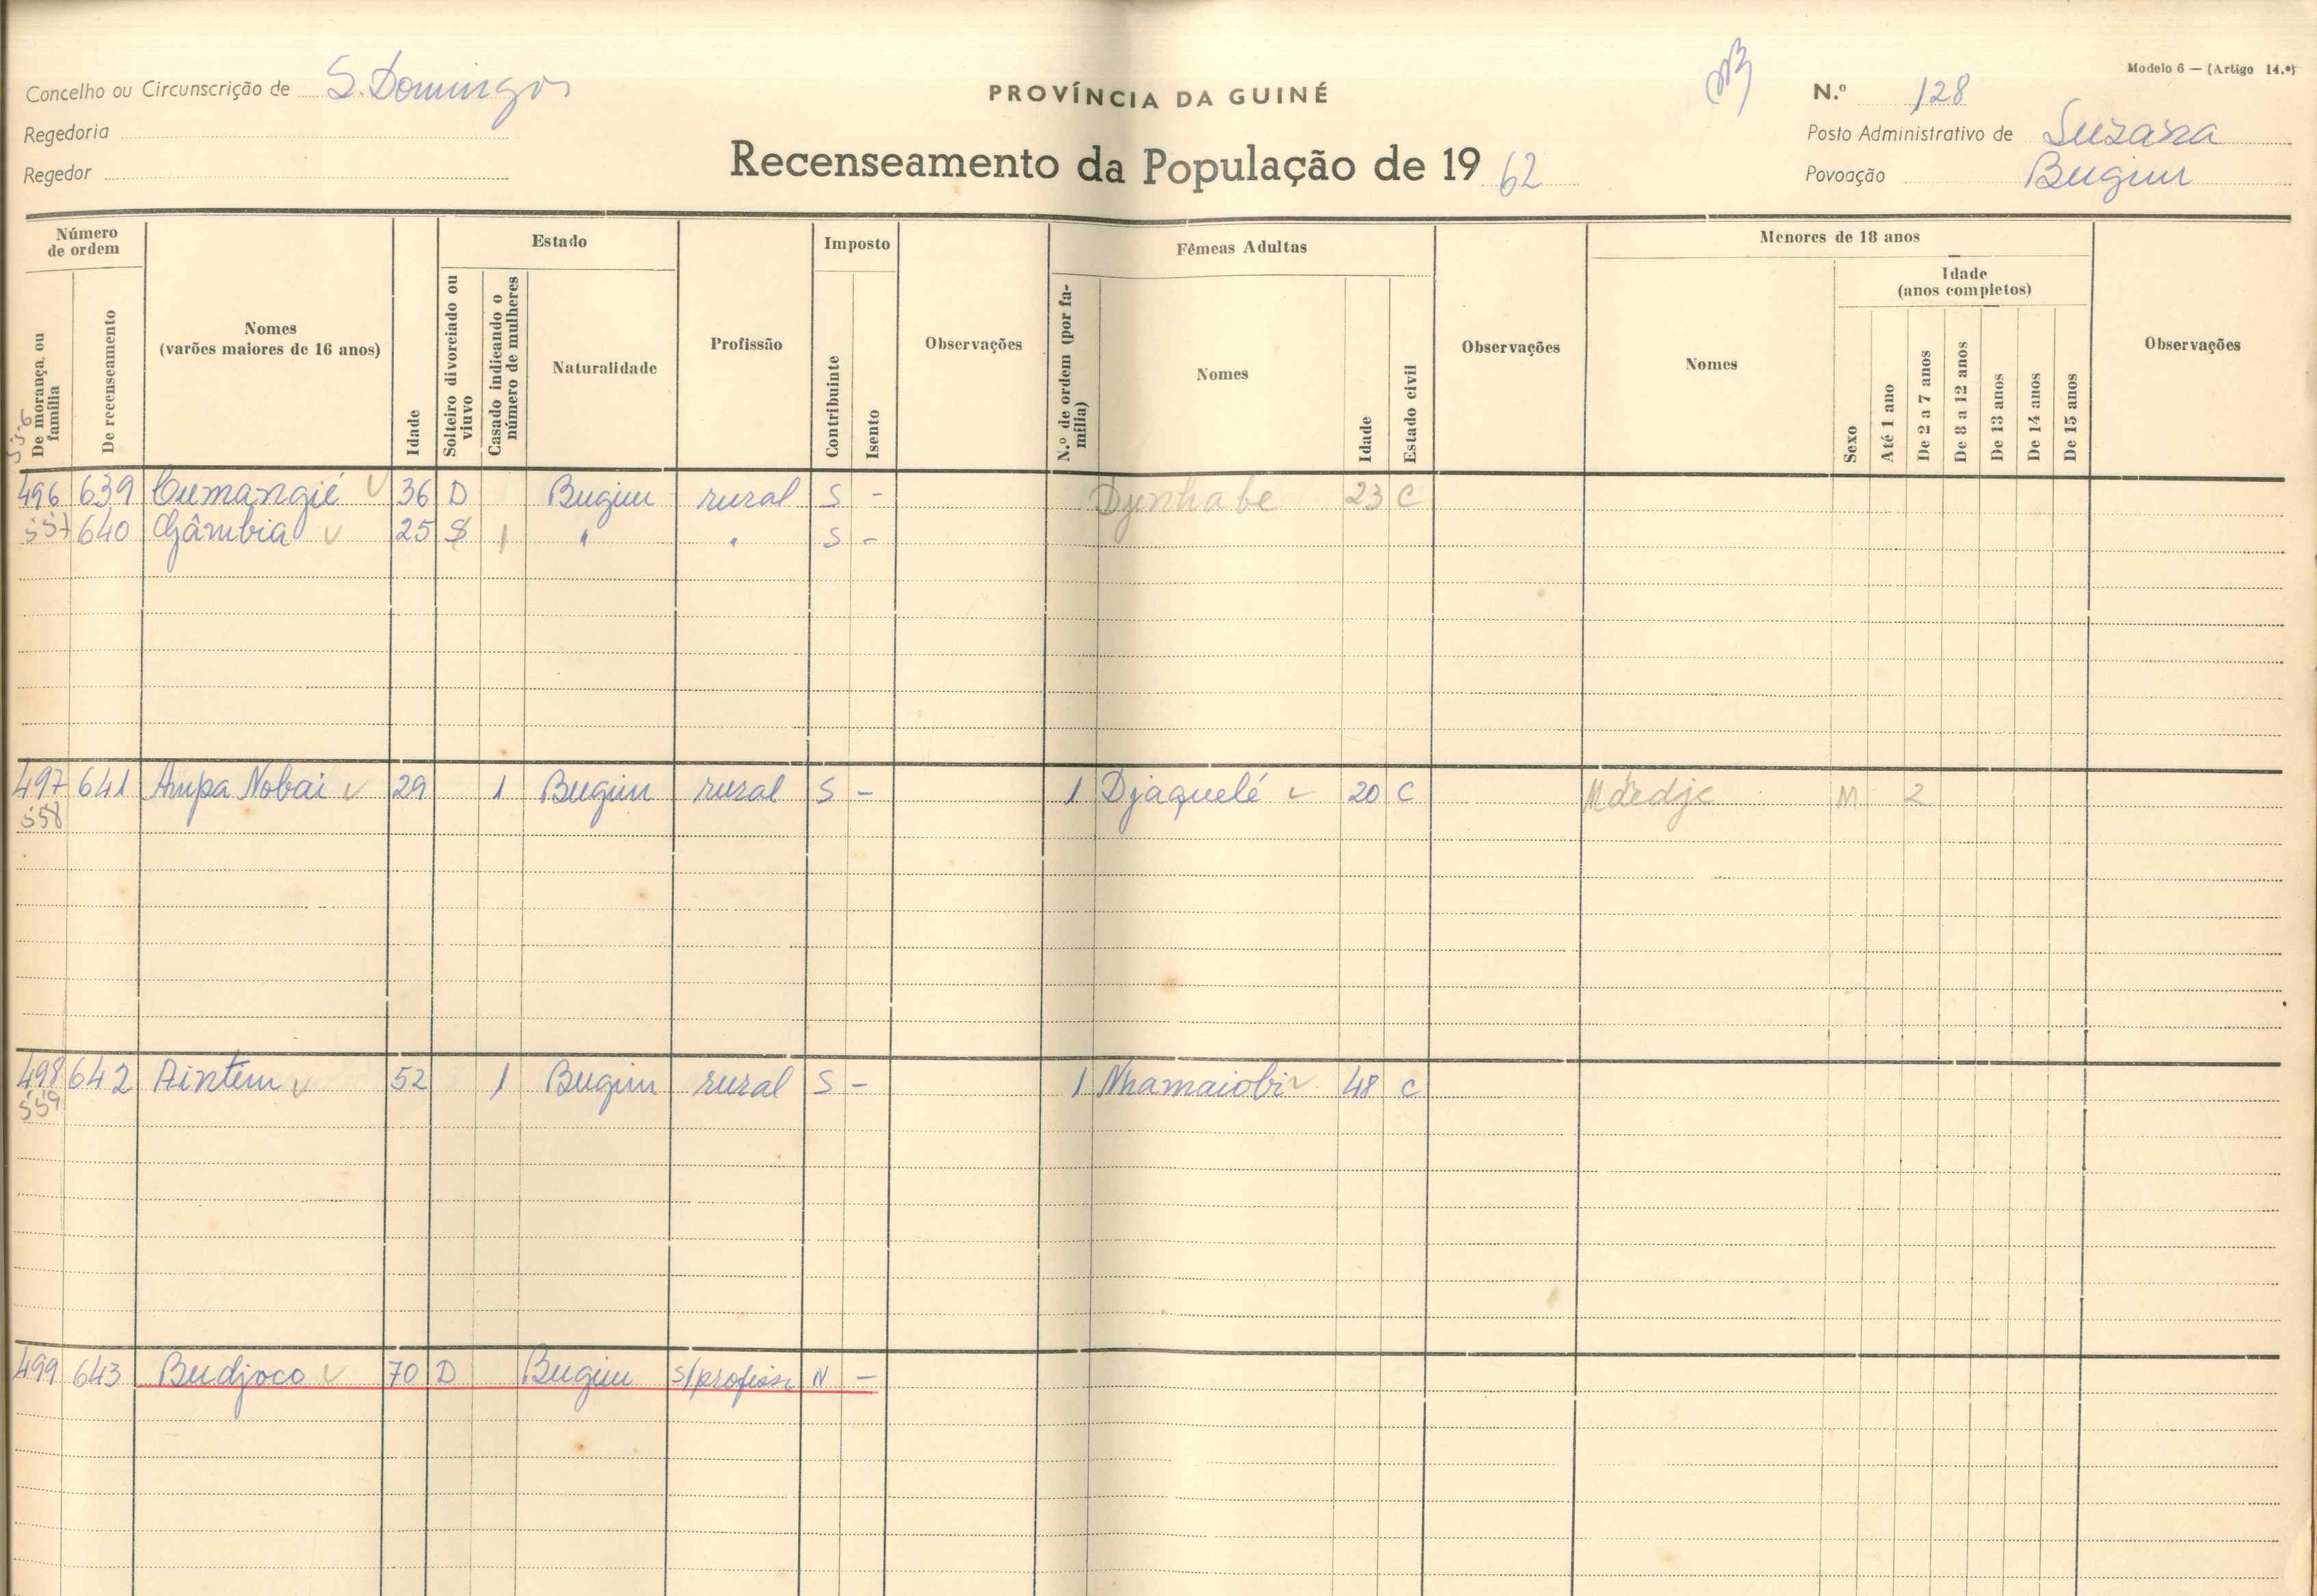 Modelo 6 — (Artigo 14.º)
Concelho ou Circunscrição de S. Domingos
PROVÍNCIA DA GUINÉ
N.º 128
Regedoria
Posto Administrativo de Suzana
Recenseamento da População de 1962
Regedor
Povoação Bugim
Número de ordem
De morança, ou família
De recenseamento
Nomes
(varões maiores de 16 anos)
Idade
Estado
Solteiro divorciado ou viuvo
Casado indicando o número de mulheres
Naturalidade
Profissão
Imposto
Contribuinte
Isento
Observações
Fêmeas Adultas
N.º de ordem (por família)
Nomes
Idade
Estado civil
Observações
Menores de 18 anos
Nomes
Sexo
Idade
(anos completos)
Até 1 ano
De 2 a 7 anos
De 8 a 12 anos
De 13 anos
De 14 anos
De 15 anos
Observações
556
496 639 Cumangié 36 D Bugim rural S - Djinhabe 23 C
557 640 Gâmbia 25 S 1 " " S -
497 641 Ampa Nobai 29 1 Bugim rural S - 1 Djaquelé 20 C M 2
558
498 642 Aintém 52 1 Bugim rural S - 1 Nhamaiobi 48 C
559
499 643 Budjoco 70 D Bugim s/profiss N -